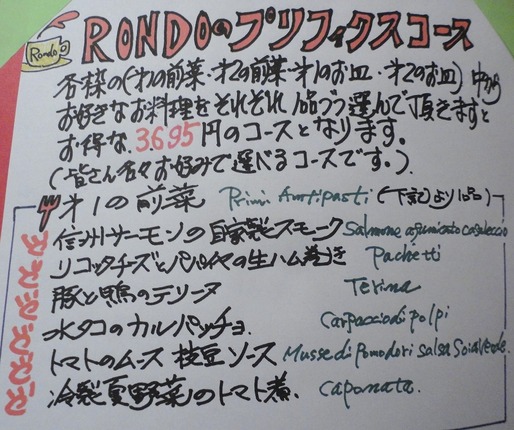 Rondo
RONDOのプリフィックスコース
各様の(才1の前菜・才2の前菜・才1のお皿・才2のお皿)中から
お好きなお料理をそれぞれ1品づつ選んで頂きますと
お得な3.695円のコースとなります。
(皆さん各々お好みで選べるコースです。)
才1の前菜 Primi Antipasti (下記より1品)
信州サーモンの自家製スモーク Salmone afumicato casaleccio
リコッタチーズとパパイヤの生ハム巻き Pachetti
豚と鴨のテリーヌ Terina
水タコのカルパッチョ. Carpaccio di polpi
トマトのムース 枝豆ソース Musse di Pomodori Salsa Soia Verde.
冷製夏野菜のトマト煮. Caponata.